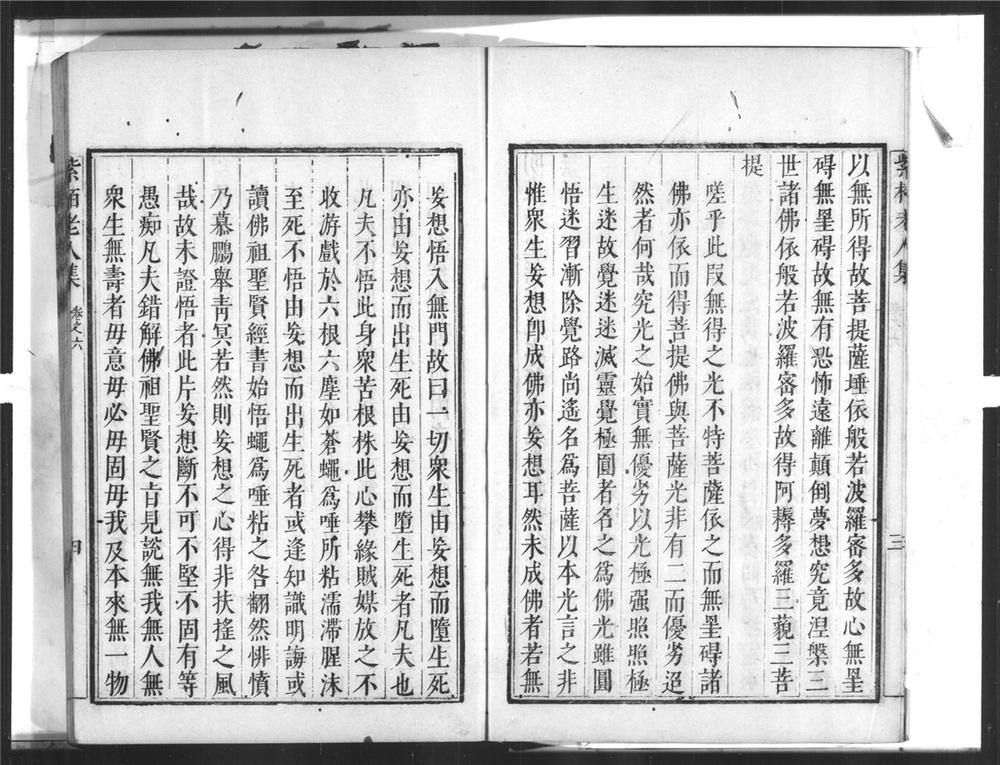 紫柏老人集
三
以無所得故菩提薩埵依般若波羅蜜多故心無罣
礙無罣礙故無有恐怖遠離顛倒夢想究竟涅槃三
世諸佛依般若波羅蜜多故得阿耨多羅三藐三菩
提
嗟乎此叚無得之光不特菩薩依之而無罣碍諸
佛亦依而得菩提佛與菩薩光非有二而優劣迢
然者何哉究光之始實無優劣以光極强照照極
生迷故覺迷迷滅靈覺極圓者名之爲佛光雖圓
悟迷習漸除覺路尚遙名爲菩薩以本光言之非
惟衆生妄想卽成佛亦妄想耳然未成佛者若無
妄想悟入無門故曰一切衆生由妄想而墮生死
亦由妄想而出生死由妄想而墮生死者凡夫也
凡夫不悟此身衆苦根株此心攀緣賊媒放之不
收游戲於六根六塵如蒼蠅爲唾所粘濡滯腥沫
至死不悟由妄想而出生死者或逢知識明誨或
讀佛祖聖賢經書始悟蠅爲唾粘之咎翻然悱憤
乃慕鵬舉靑冥若然則妄想之心得非扶搖之風
哉故未證悟者此片妄想斷不可不堅不固有等
愚痴凡夫錯解佛祖聖賢之旨見說無我無人無
衆生無壽者毋意毋必毋固毋我及本來無一物
紫栢老人集
卷之六
四